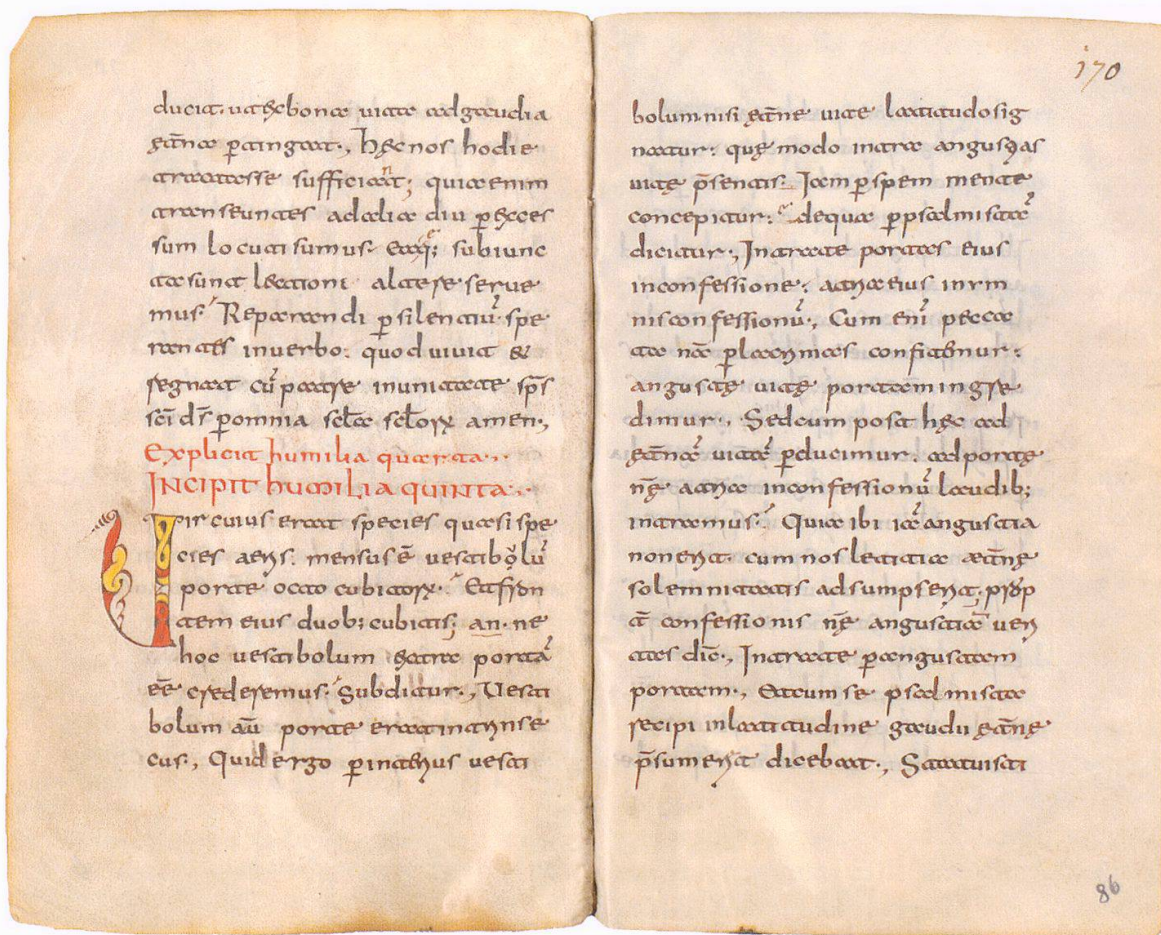 ducit. ut & bona uita ad gaudia
ęt̄na ꝑtingat., hęc nos hodie
tractasse sufficiant; quia enim
transeuntes ad alia diu ꝑ exces
sum locuti sumus. Eaq; subiunc
ta sunt lectioni altere serue
mus. Reparandi ꝑ silentiū. spe
rantes in uerbo. quod uiuit &
regnat cū patre in unitate sp̄s
sc̄i ds̄ ꝑ omnia scl̄a scl̄orꝝ amen.,
Explicit humilia quarta.
INCIPIT humiliA QUINTA.
Uir cuius erat species quasi spe
cies aeris. mensus ē uestibolū
porte octo cubitorꝝ. Et fron
tem eius duob; cubitis; an. ne
hoc uestibolum extra portā
eē crederemus. Subditur., Uesti
bolum aū porte erat intrinse
cus., Quid ergo ꝑ interius uesti
170
bolum. nisi ęt̄ne uite latitudo sig
natur. quę modo intra angustias
uitę p̄sentis. Iam ꝑ spem mente
concepitur. de qua ꝑ psalmistā
dicitur., Intrate portas eius
in confessione. atria eius in ym
nis confessionū., Cum enī pecca
ta nr̄a ꝑ lacrimas confitemur.
angustę uitę portam ingre
dimur., Sed cum post hęc ad
ęt̄nā uitā ꝑducimur. ad portę
nr̄ę atria in confessionū laudib;
intramus. Quia ibi iā angustia
non erit. cum nos letitia ęt̄nę
solemnitatis adsumpserit. prop
t̄ confessionis nr̄ę angustiā ueri
tas dic̄., Intrate ꝑ angustam
portam., Et cum se psalmista
recipi in latitudine gaudii ęt̄nę
p̄sumeret dicebat., Statuisti
86